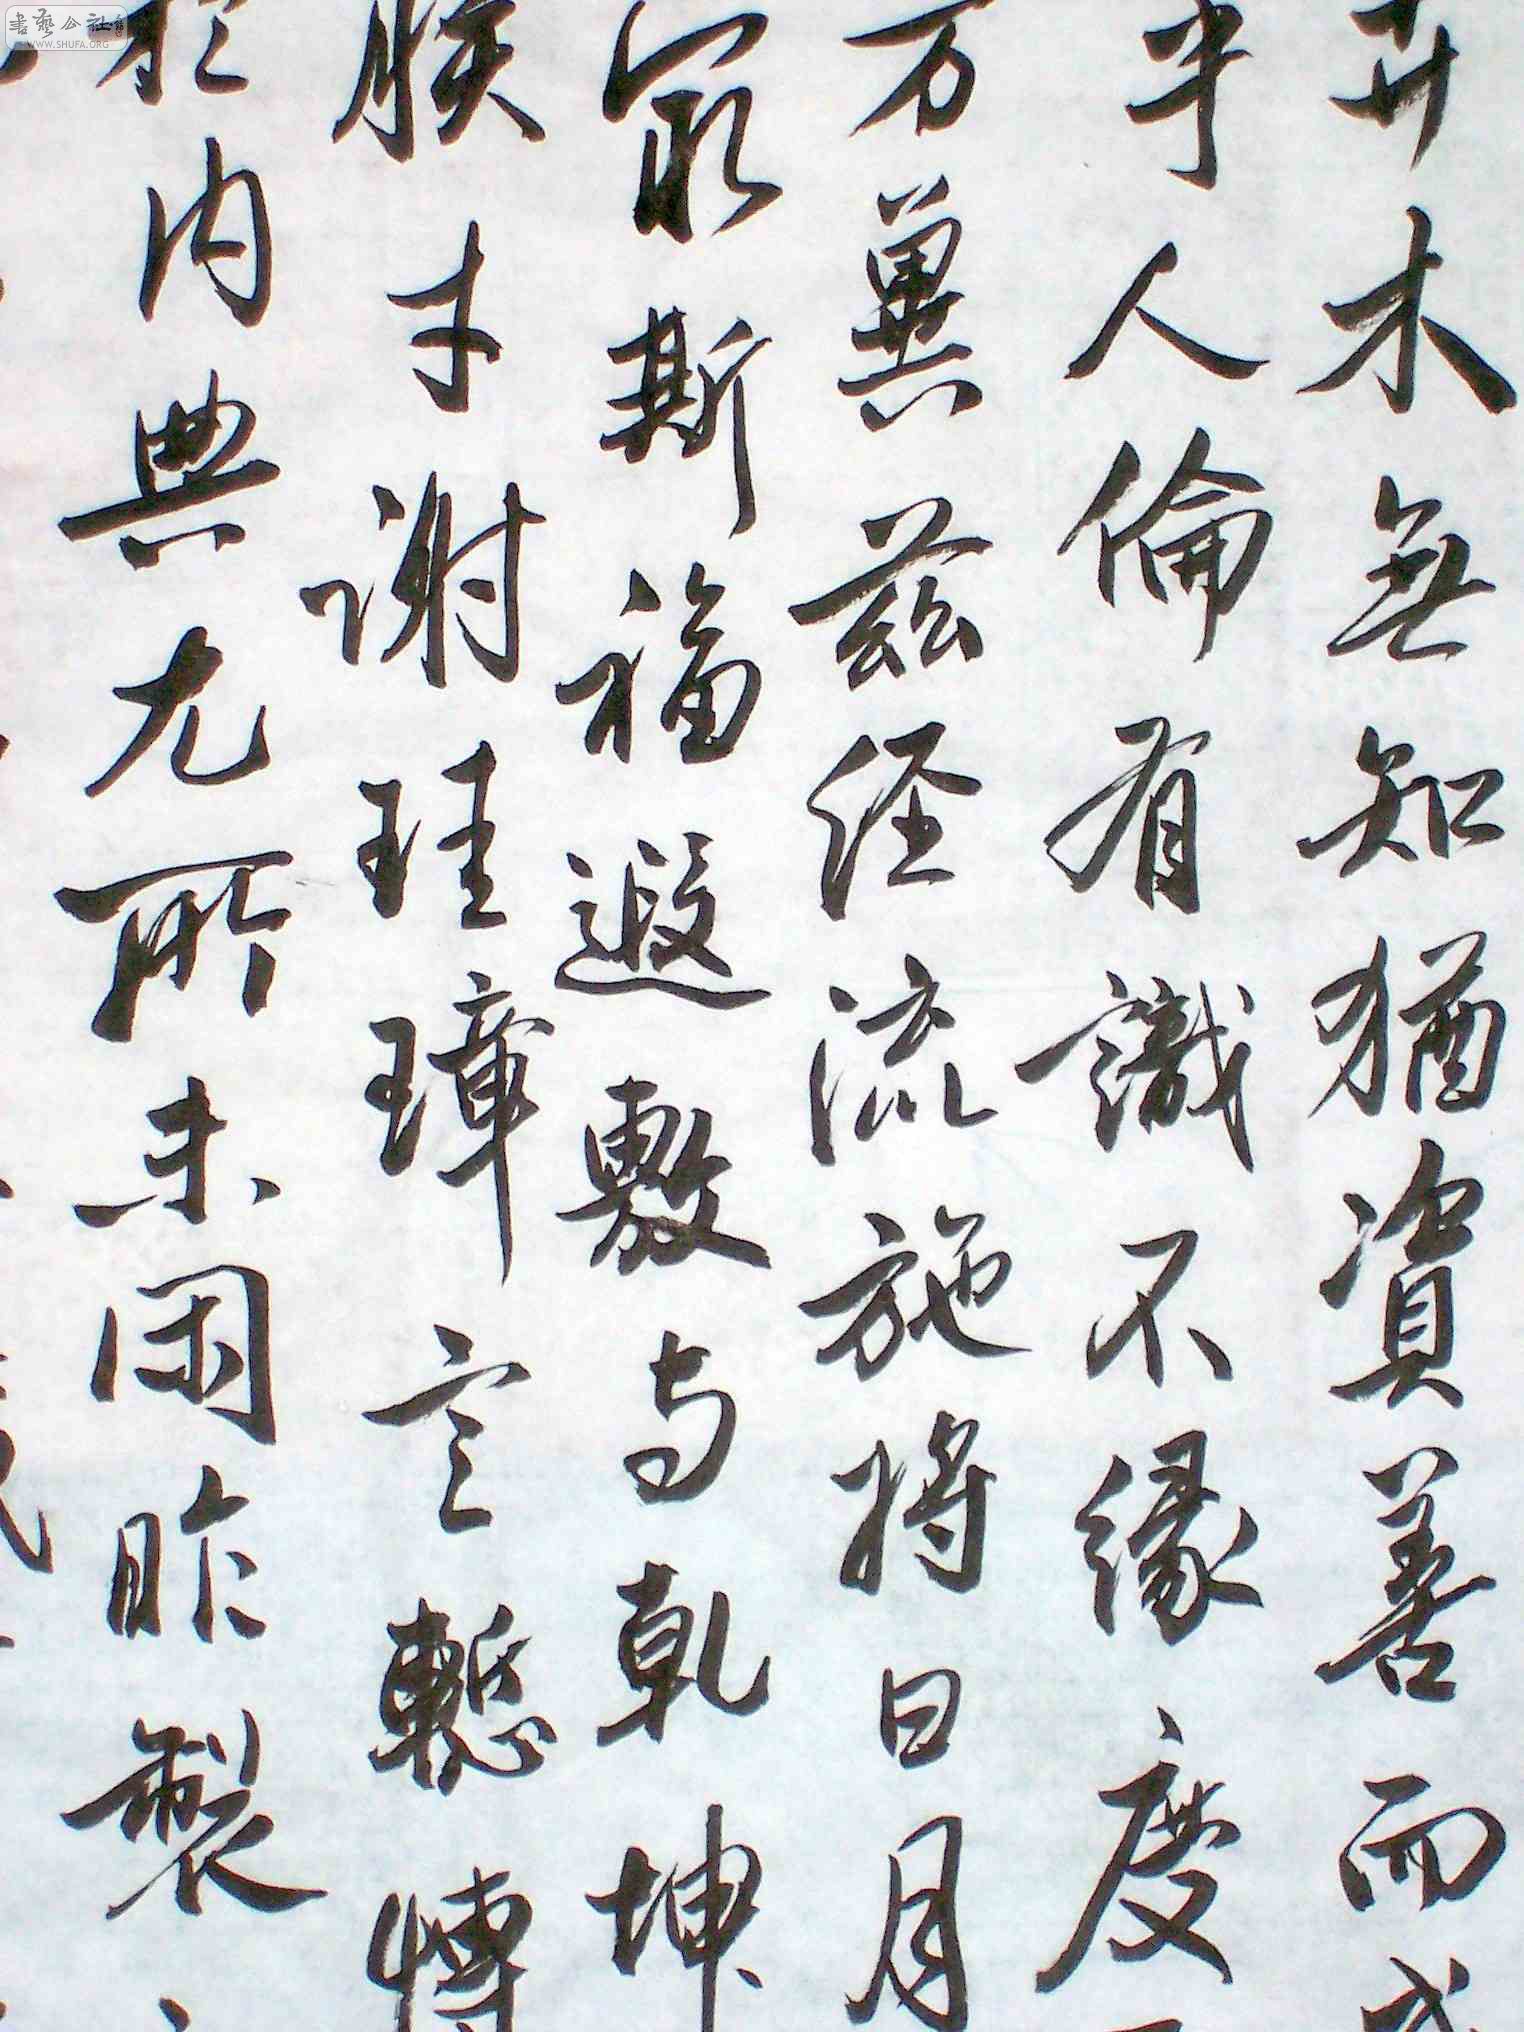 卉木無知猶資善而成
乎人倫有識不緣度
方冀茲经流施將日月
窮斯福遐敷与乾坤
朕才謝珪璋言慙博
於内典尤所未閑昨製
書藝公社
WWW.SHUFA.ORG